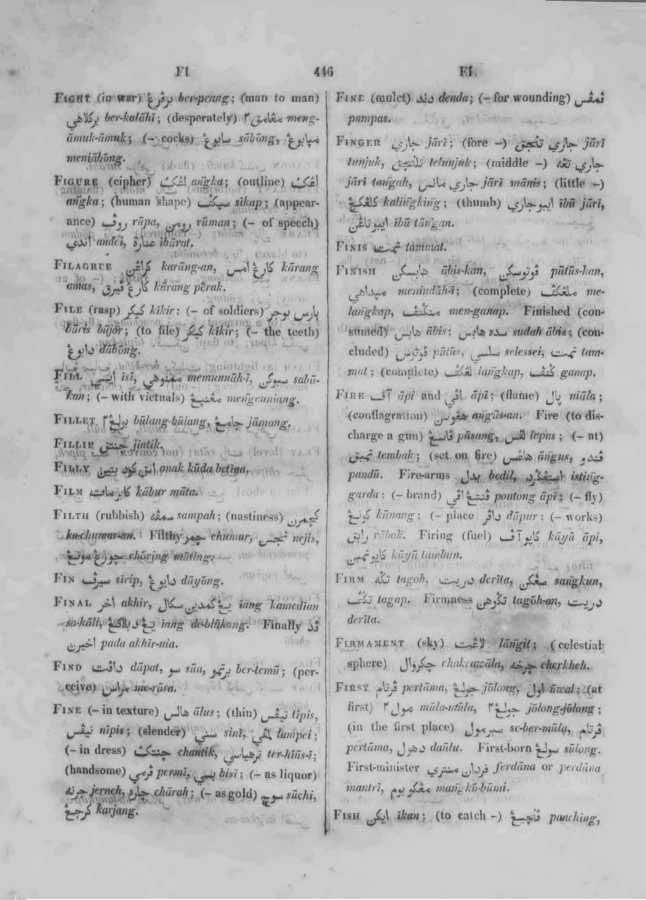 FI
446
FI.
FIGHT (in war) برڤرغ ber-prang; (man to man)
بركلاهي ber-kalāhi; (desperately) مڠامق٢ meng-
āmuk-āmuk; (– cocks) سابوڠ sābōng, مپابوڠ
meniābōng.
FIGURE (cipher) اڠكت angka; (outline) اڠكت
angka; (human shape) سيكف sikap; (appear-
ance) روڤ rūpa, رومن rūman; (– of speech)
عبارة ibārat.
FILAGREE karāng-an, كارڠ امس kārang
amas, كارڠ ڤيرق kārang pērak.
FILE (rasp) كيكر kikir; (– of soldiers) بارس بوجر
bāris būjor; (to file) كيكر kikir; (– the teeth)
دابوڠ dābōng.
FILL ايسي isi, ممنوهي memunnūh-i, سبوكن sabū-
kan; (– with victuals)
FILLET būlang-būlang, جامڠ jāmang.
FILLIP جنتق jintik.
FILLY انق كود بتين anak kūda betina.
FILM كابر مات kābur māta.
FILTH (rubbish) سمڤه sampah; (nastiness)
Filthy چمر chumar, نجس nejis,
FIN سيرڤ sirip, دايوڠ dāyōng.
FINAL اخر akhir, iang kamedian
Finally
اخيرن pada akhir-nia.
FIND داڤت dāpat, سو sūa, برتمو ber-temū; (per-
ceive) مراس me-rāsa.
FINE (– in texture) هالس ālus; (thin) تيڤس tipis,
نيڤس nipis; (slender) سني sini, lampei;
(– in dress) چنتك chantik, ترهياسي ter-hiās-i;
(handsome) ڤرمي permi, بيسي bisi; (– as liquor)
جرنه jerneh, چاره chārah; (– as gold) سوچي sūchi,
كرجڠ karjang.
FINE (mulct) دند denda; (– for wounding) ڤمڤس
pampas.
FINGER جاري jāri; (fore –) جاري تنجق jāri
tunjuk, تلنجق telunjuk; (middle –) جاري تڠه
jāri tangah, جاري مانس jāri mānis; (little –)
كلڠكڠ kalingking; (thumb) ايبو جاري ibū jāri,
ايبو تاڠن ibū tāngan.
FINIS تمت tammat.
FINISH هابسكن ābis-kan, ڤوتوسكن pūtūs-kan,
(complete) ملڠكڤ me-
langkap, مڠنڤ men-ganap. Finished (con-
sumed) هابس ābis; سده هابس sudah ābis; (con-
cluded) ڤوتس pūtūs, سلسي selessei, تمت tam-
mat; (complete) لڠكڤ langkap, ڬنڤ ganap.
FIRE اڤي āpi and اڤي āpi; (flame) پال niāla;
(conflagration) هڠوسن angūs-an. Fire (to dis-
charge a gun) ڤاسڠ pāsang, لڤس lepas; (– at)
تمبق tembak; (set on fire) هاڠس āngus, ڤندو
pandū. Fire-arms بدل bedil, استڠڬرد isting-
garda; (– brand) ڤنتڠ اڤي pontong āpi; (– fly)
كونڠ kūnang; (– place) داڤر dāpur; (– works)
Firing (fuel) كايو اڤي kāyū āpi,
FIRM تڬه tagoh, دريت derīta, سڠكن sangkun,
تڬڤ tagap. Firmness تڬوهن tagōh-an, دريت
derīta.
FIRMAMENT (sky) لاڠت lāngit; (celestial
sphere) چكروال chakrawāla, چرخه cherkheh.
FIRST ڤرتام pertāma, جولڠ jūlong, اول āwal; (at
first) مول٢ mūla-mūla, جولڠ٢ jūlong-jūlong;
(in the first place) سبرمول se-ber-mūla, ڤرتام
pertāma, دهول daūlu. First-born سولڠ sūlong.
First-minister فردان منتري ferdāna or perdāna
mantri, مڠكو بوم mangkū-būmi.
FISH ايكن ikan; (to catch –) ڤنچڠ panching,